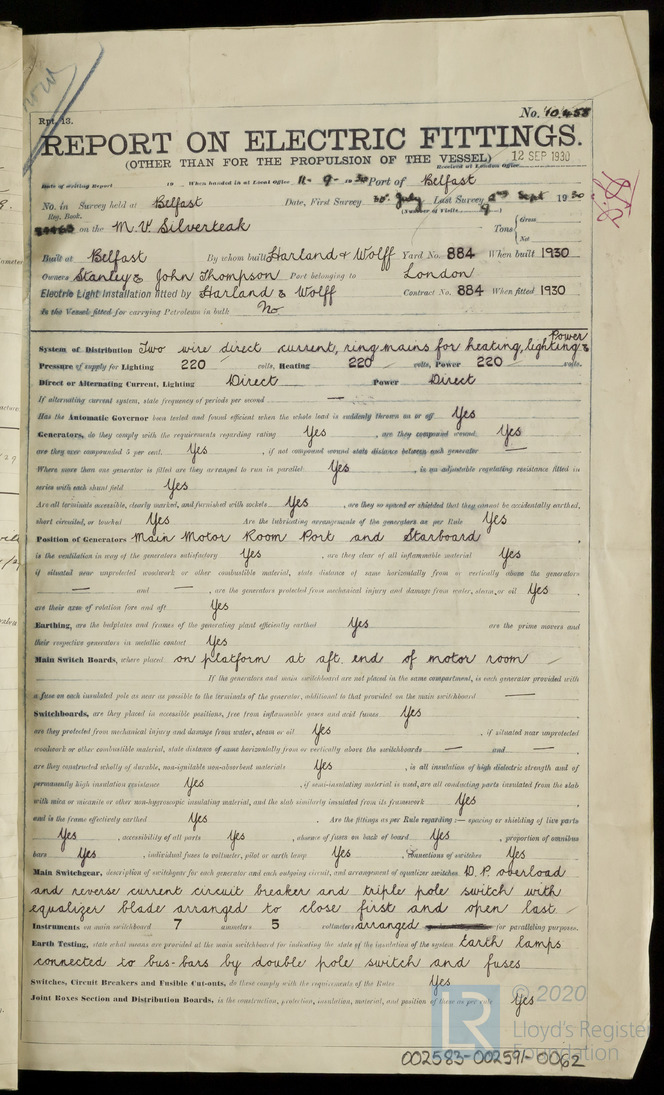 No. 10,458
Rpt. 13.
REPORT ON ELECTRIC FITTINGS.
(OTHER THAN FOR THE PROPULSION OF THE VESSEL) 12 SEP 1930
Received at London Office
Date of writing Report 19 When handed in at Local Office 11-9-1930 Port of Belfast
No. in Survey held at Belfast Date, First Survey 30 July Last Survey 2nd Sept 1930
Reg. Book. (Number of Visits 9)
on the M.V. Silverteak Tons { Gross
Net
Built at Belfast By whom built Harland & Wolff Yard No. 884 When built 1930
Owners Stanley & John Thompson Port belonging to London
Electric Light Installation fitted by Harland & Wolff Contract No. 884 When fitted 1930
Is the Vessel fitted for carrying Petroleum in bulk No
System of Distribution Two wire direct current, ring mains for heating, lighting & Power
Pressure of supply for Lighting 220 volts, Heating 220 volts, Power 220 volts.
Direct or Alternating Current, Lighting Direct Power Direct
If alternating current system, state frequency of periods per second —
Has the Automatic Governor been tested and found efficient when the whole load is suddenly thrown on or off Yes
Generators, do they comply with the requirements regarding rating Yes, are they compound wound Yes
are they over compounded 5 per cent. Yes, if not compound wound state distance between each generator —
Where more than one generator is fitted are they arranged to run in parallel Yes, is an adjustable regulating resistance fitted in
series with each shunt field Yes
Are all terminals accessible, clearly marked, and furnished with sockets Yes, are they so spaced or shielded that they cannot be accidentally earthed,
short circuited, or touched Yes Are the lubricating arrangements of the generators as per Rule Yes
Position of Generators Main Motor Room Port and Starboard
is the ventilation in way of the generators satisfactory Yes, are they clear of all inflammable material Yes
if situated near unprotected woodwork or other combustible material, state distance of same horizontally from or vertically above the generators
— and —, are the generators protected from mechanical injury and damage from water, steam, or oil Yes
are their axes of rotation fore and aft Yes
Earthing, are the bedplates and frames of the generating plant efficiently earthed Yes are the prime movers and
their respective generators in metallic contact Yes
Main Switch Boards, where placed on platform at aft. end of motor room
If the generators and main switchboard are not placed in the same compartment, is each generator provided with
a fuse on each insulated pole as near as possible to the terminals of the generator, additional to that provided on the main switchboard —
Switchboards, are they placed in accessible positions, free from inflammable gases and acid fumes Yes
are they protected from mechanical injury and damage from water, steam or oil Yes, if situated near unprotected
woodwork or other combustible material, state distance of same horizontally from or vertically above the switchboards — and —
are they constructed wholly of durable, non-ignitable non-absorbent materials Yes, is all insulation of high dielectric strength and of
permanently high insulation resistance Yes, if semi-insulating material is used, are all conducting parts insulated from the slab
with mica or micanite or other non-hygroscopic insulating material, and the slab similarly insulated from its framework Yes
and is the frame effectively earthed Yes Are the fittings as per Rule regarding:— spacing or shielding of live parts
Yes, accessibility of all parts Yes, absence of fuses on back of board Yes, proportion of omnibus
bars Yes, individual fuses to voltmeter, pilot or earth lamp Yes, connections of switches Yes
Main Switchgear, description of switchgear for each generator and each outgoing circuit, and arrangement of equalizer switches. D.P. overload
and reverse current circuit breaker and triple pole switch with
equalizer blade arranged to close first and open last
Instruments on main switchboard 7 ammeters 5 voltmeters arranged for paralleling purposes.
Earth Testing, state what means are provided at the main switchboard for indicating the state of the insulation of the system Earth lamps
connected to bus-bars by double pole switch and fuses
Switches, Circuit Breakers and Fusible Cut-outs, do these comply with the requirements of the Rules Yes
Joint Boxes Section and Distribution Boards, is the construction, protection, insulation, material, and position of these as per rule Yes
© 2020
LR
Lloyd's Register
Foundation
002583-002591-0062